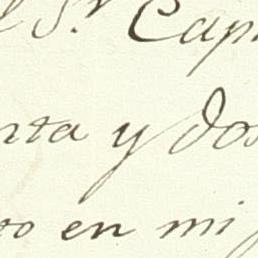 el S.r Cap
nta y dos
to en mi